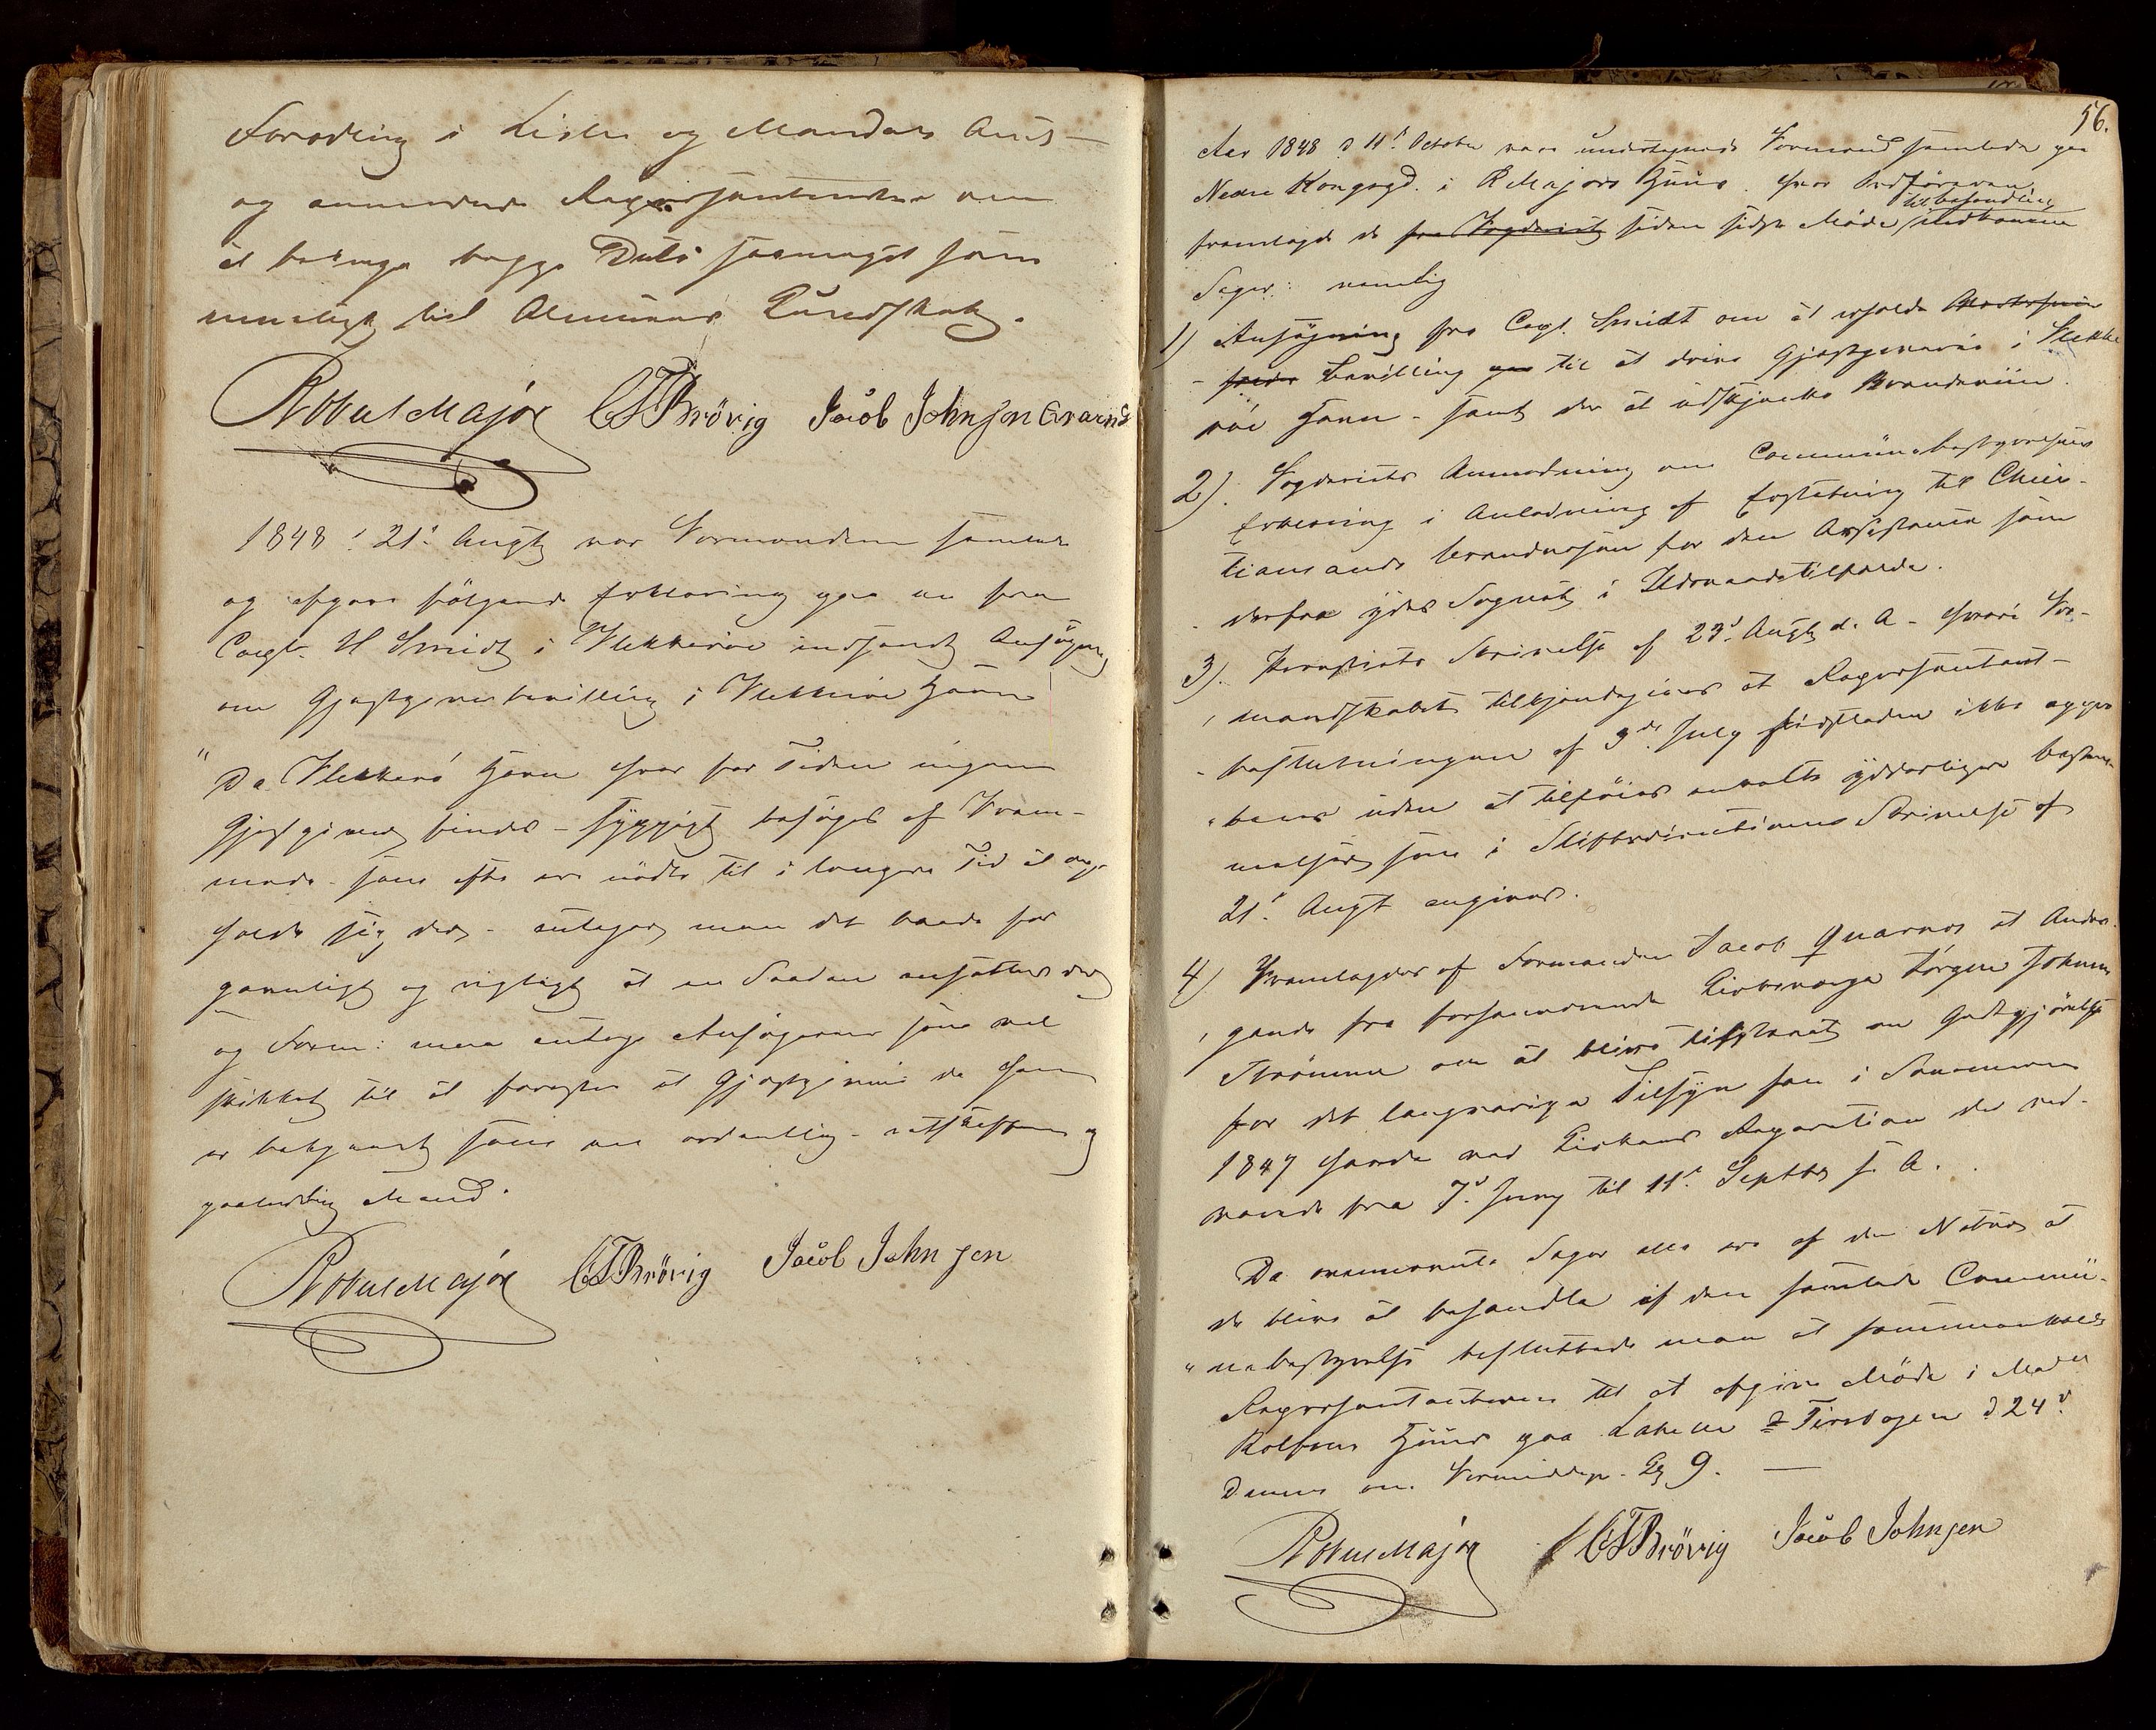 Foredling i Lister og Mandals Amt -
og anmodede Repræsentanterne om
at bringe begge Dele saameget som
mueligt til Almuens Kundskab.
Robert Major CTBrövig Jacob Johnsen Qvarnæs
1848 d 21de Augt var Formændene samlede
og afgave fölgende Erklæring paa en fra
Capt. H Smidt i Flekkeröe indsendt Ansögning
om Gjestgiverbevilling i Flekkeröe Havn
"Da Flekkerö Havn hvor for Tiden ingen
Gjestgiver findes - hyppigt besöges af Frem-
mede - som ofte ere nödte til i længere Tid at op-
holde sig der - antager man det baade for
gavnligt og vigtigt at en Saadan ansættes der
og Form: maa antage Ansögeren som vel
skikket til at forestaae et Gjestgiverie da han
er bekjendt som en ordentlig - retskaffen og
paalidelig Mand.
Robert Major CTBrövig Jacob Johnsen
56.
Aar 1848 d 11te October vare undertegnede Formænd samlede paa
Nedre Kongsgd. i R Majors Huus. hvor Ordföreren
til behandling
fremlagde de fra Fogderiet siden sidste Möde indkomne
Sager: nemlig
1) Ansögning fra Capt. Smidt om at erholde
Bevilling til at drive Gjestgiverie i Flekke
röe Havn - samt der at udskjænke Brændeviin.
2). Fogderiets Anmodning om Communebestyrelsens
Erklæring i Anledning af Erstatning til Chris-
tiansands Brandvæsen for den Assistance som
derfra ydes Sognet i Ildsvaadetilfælde.
3). Provstiets Skrivelse af 23de Augt d. A. hvori For-
mandskabet tilkjendegives at Repræsentant-
beslutningen af 3de July sidstleden ikke appro
beres uden at tilföies enkelte yderligere bestem-
melser som i Stiftsdirectionens Skrivelse af
21de Augt angives.
4) Fremlagdes af Formanden Jacob Qvarnes et Andra-
gende fra forhenværende Kirkeværge Jörgen Johnsen
Strömme om at blive tilstaaet en Godtgjörelse
for det langvarige Tilsyn han i Sommeren
1847 havde ved Kirkens Reparation der ved-
varede fra 7de Juny til 11te Septbr s. A.
Da ovennævnte Sager alle ere af den Natur at
de blive at behandle af den samlede Commu-
nebestyrelse besluttede man at sammenkalde
Repræsentanterne til at afgive Möde i Mad
Rolfsens Huus paa Tirsdagen d 24de
Dennes om Formiddagen Kl 9. -
Robert Major CTBrövig Jacob Johnsen